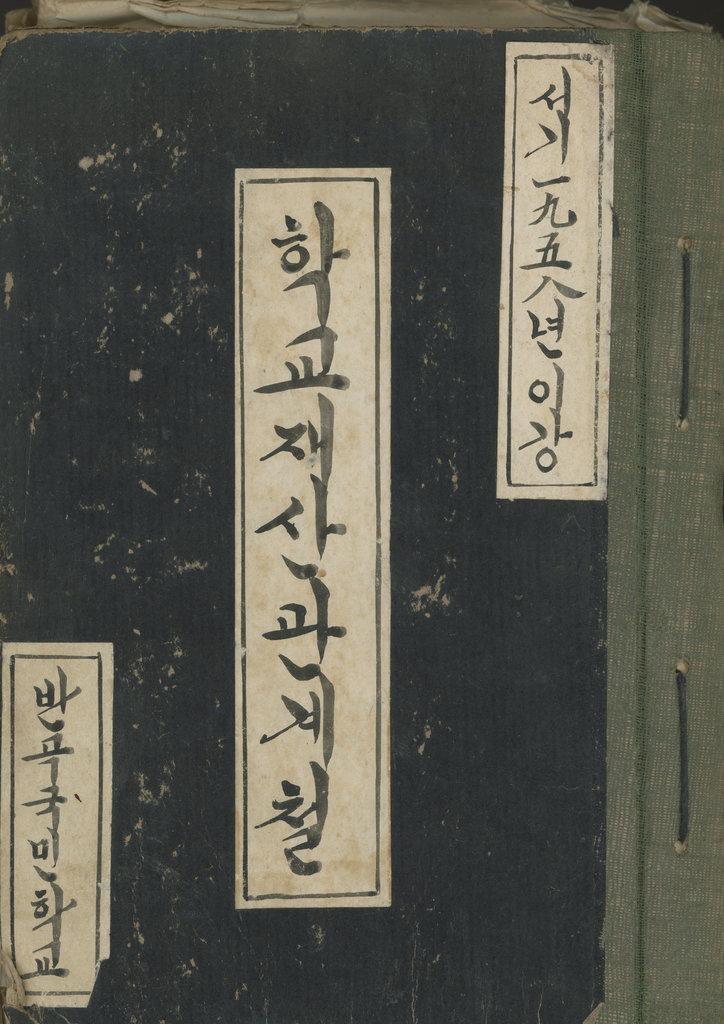 서기一九五八년이강
학교재산관계철
반곡국민학교